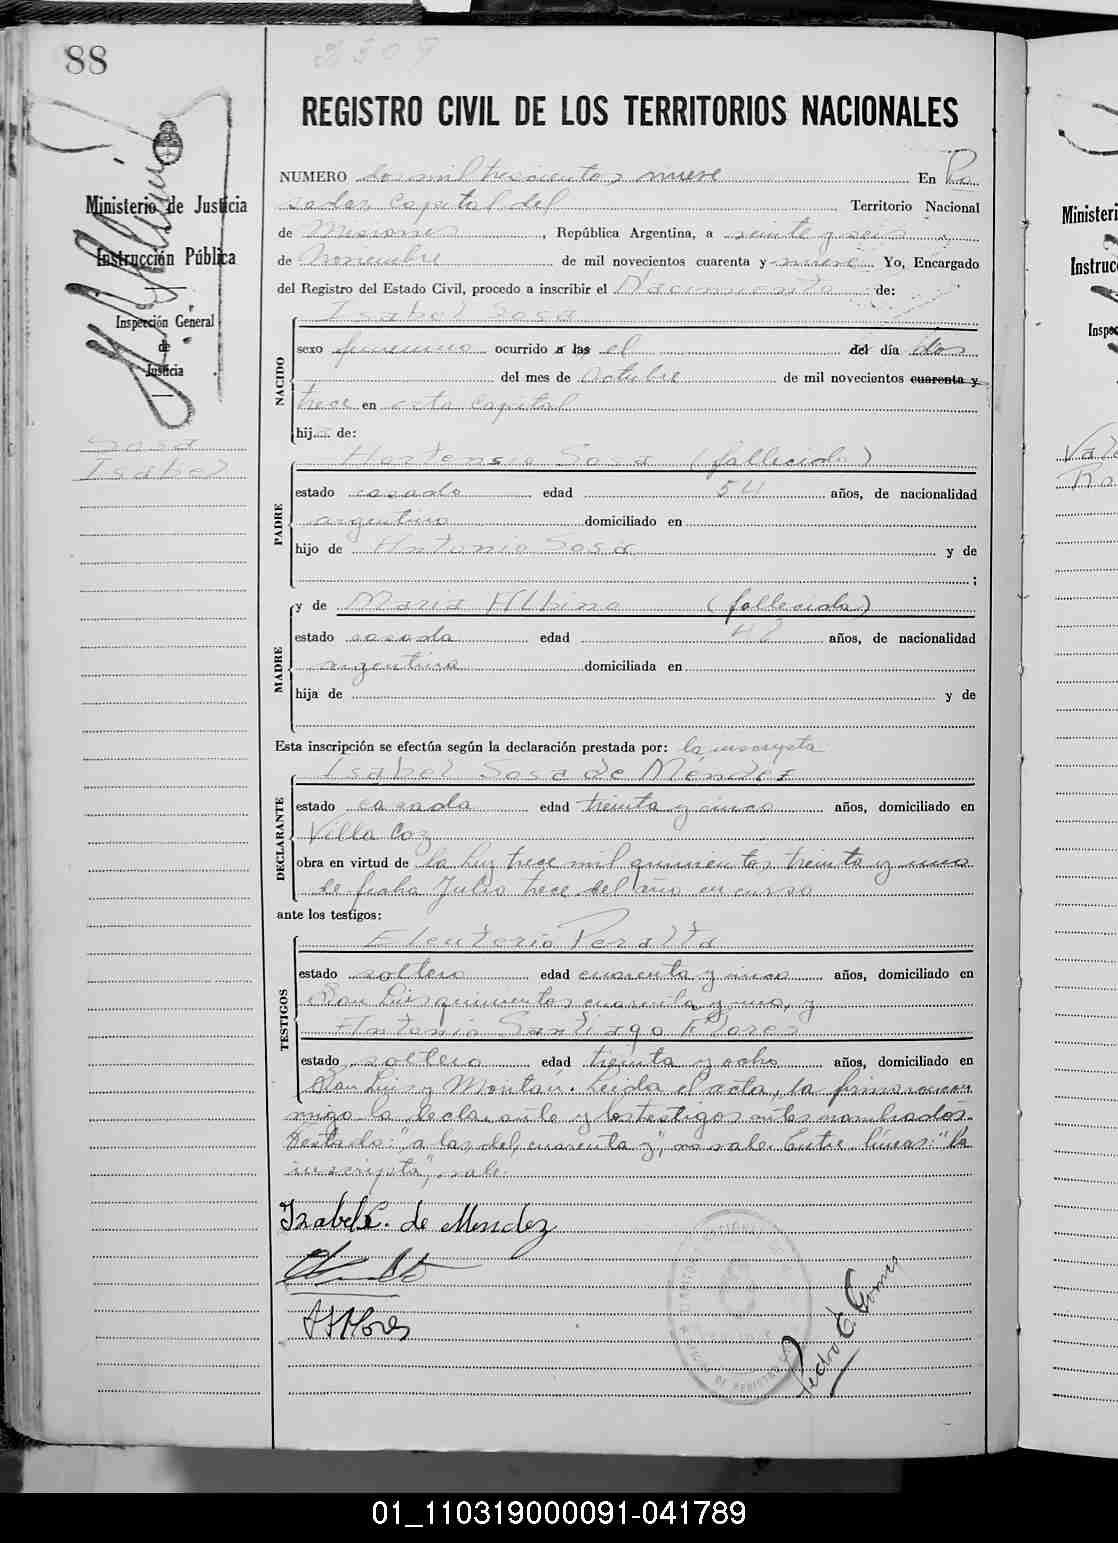 88
2309
REGISTRO CIVIL DE LOS TERRITORIOS NACIONALES
Ministerio de Justicia
Instrucción Pública
Inspección General
de
Justicia
Sosa
Isabel
NUMERO dos mil trescientos nueve En Po
sadas Capital del Territorio Nacional
de Misiones, República Argentina, a veinte y seis
de Noviembre de mil novecientos cuarenta y nueve. Yo, Encargado
del Registro del Estado Civil, procedo a inscribir el Nacimiento de:
Isabel Sosa
NACIDO
sexo femenino ocurrido a las el del día dos
del mes de Octubre de mil novecientos cuarenta y
trece en esta Capital
hij de:
Hortensio Sosa (fallecido)
PADRE
estado casado edad 54 años, de nacionalidad
argentino domiciliado en
hijo de Antonio Sosa y de
;
y de Maria Albina (fallecida)
MADRE
estado casada edad años, de nacionalidad
argentina domiciliada en
hija de y de
Esta inscripción se efectúa según la declaración prestada por: la inscripta
Isabel Sosa de Méndez
DECLARANTE
estado casada edad treinta y cinco años, domiciliado en
Villa Coz
obra en virtud de la Ley trece mil quinientos treinta y uno
de fecha Julio trece del año en curso
ante los testigos:
Eleuterio Peralta
TESTIGOS
estado soltero edad cuarenta y cinco años, domiciliado en
San Luis quinientos cuarenta y uno, y
Antonio Santiago Flores
estado soltero edad treinta y ocho años, domiciliado en
San Luis y Montau. Leida el acta, la firmaron con
migo la declarante y los testigos antes nombrados.
Testado: "a las, del, cuarenta y", no vale. Entre líneas: "la
inscripta", vale.
de Mendez
Pedro E. Gomes
Ministeri
Instruc
Inspec
01_110319000091-041789